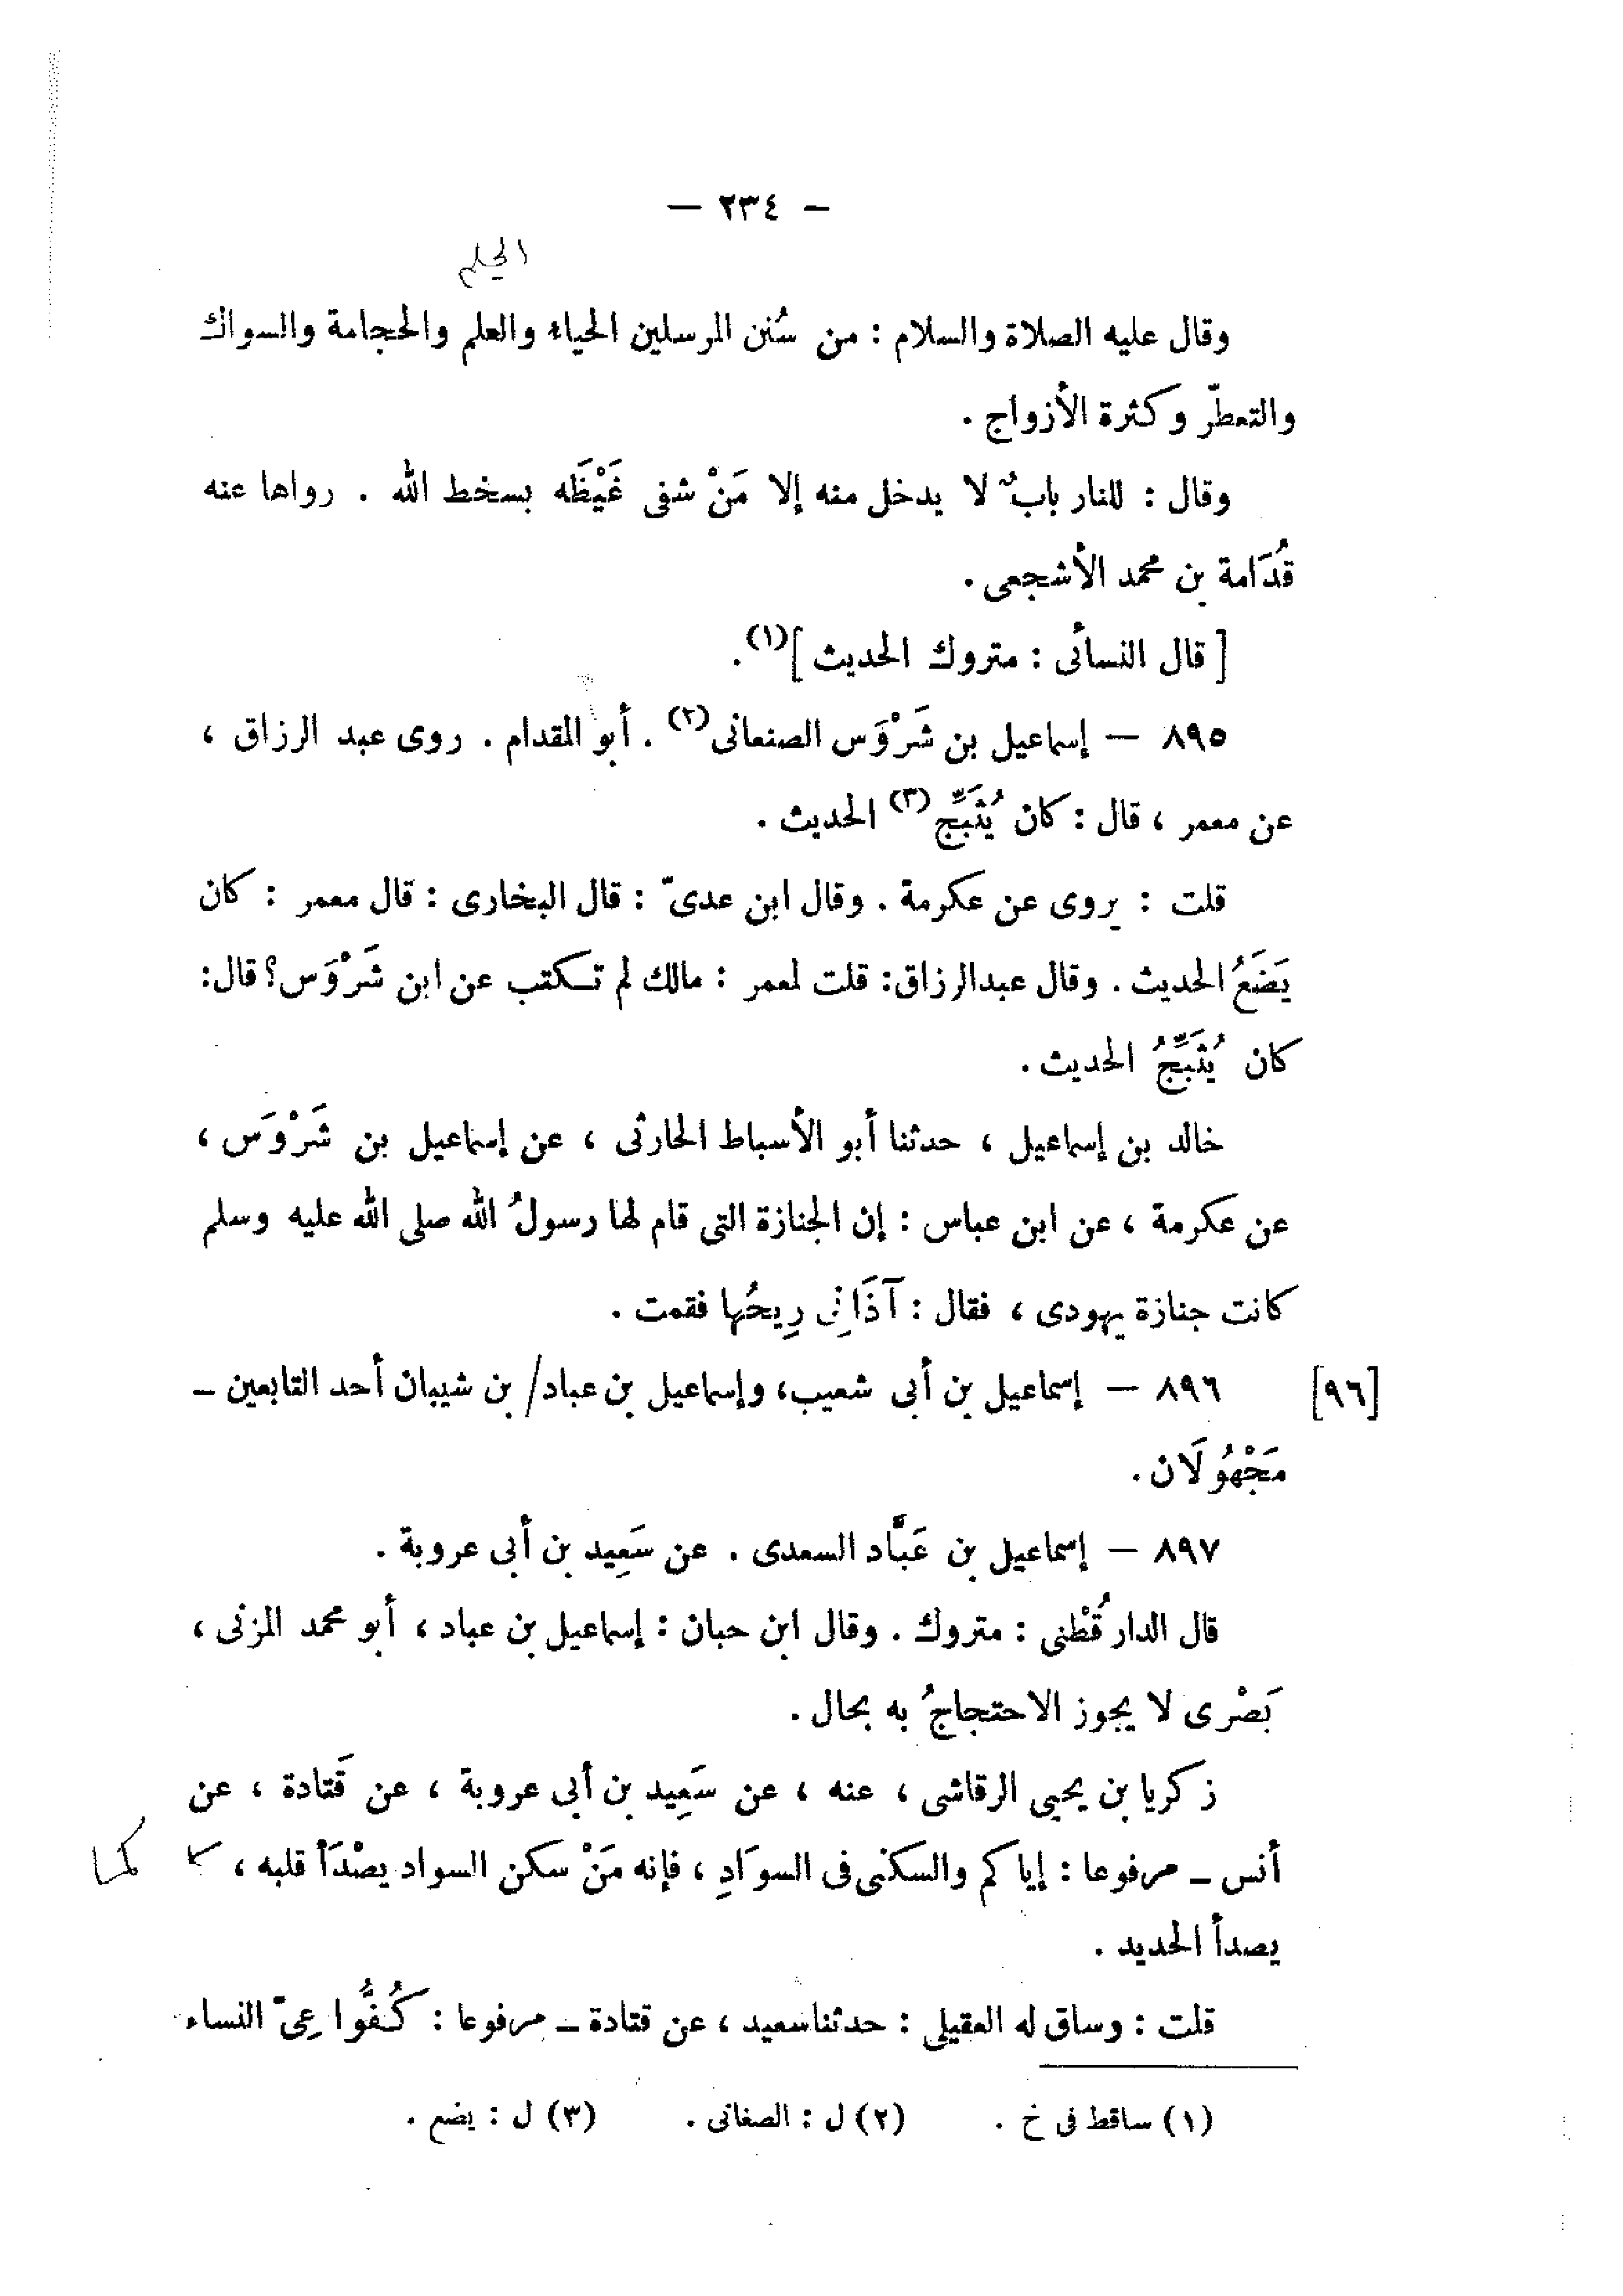 — ٢٣٤ —
الحلم
وقال عليه الصلاة والسلام : من سُنن المرسلين الحياء والعلم والحجامة والسواك
والتعطّر وكثرة الأزواج .
وقال : للنار بابٌ لا يدخل منه إلا مَنْ شفى غَيْظَه بسخط الله . رواها عنه
قُدَامة بن محمد الأشجعى .
[ قال النسائى : متروك الحديث ](١) .
٨٩٥ — إسماعيل بن شَرْوَس الصنعانى(٢) . أبو المقدام . روى عبد الرزاق ،
عن معمر ، قال : كان يُثَبِّج(٣) الحديث .
قلت : يروى عن عكرمة . وقال ابن عدىّ : قال البخارى : قال معمر : كان
يَضَعُ الحديث . وقال عبدالرزاق: قلت لمعمر : مالك لم تكتب عن ابن شَرْوَس؟ قال:
كان يُثَبِّجُ الحديث .
خالد بن إسماعيل ، حدثنا أبو الأسباط الحارثى ، عن إسماعيل بن شَرْوَس ،
عن عكرمة ، عن ابن عباس : إن الجنازة التى قام لها رسولُ الله صلى الله عليه وسلم
كانت جنازة يهودى ، فقال : آذَانِى رِيحُها فقمت .
[٩٦] ٨٩٦ — إسماعيل بن أبى شعيب، وإسماعيل بن عباد/ بن شيبان أحد التابعين –
مَجْهُولَان .
٨٩٧ — إسماعيل بن عَبَّاد السعدى . عن سَعِيد بن أبى عروبة .
قال الدارقُطْنى : متروك . وقال ابن حبان : إسماعيل بن عباد ، أبو محمد المزنى ،
بَصْرى لا يجوز الاحتجاجُ به بحال .
زكريا بن يحيى الرقاشى ، عنه ، عن سَعِيد بن أبى عروبة ، عن قَتادة ، عن
أنس – مرفوعا : إياكم والسكنى فى السوَادِ ، فإنه مَنْ سكن السواد يصْدَأ قلبه ، كما
يصدأ الحديد .
قلت : وساق له العقيلى : حدثنا سعيد ، عن قتادة – مرفوعا : كُفُّوا عِىّ النساء
(١) ساقط فى خ . (٢) ل : الصغانى . (٣) ل : يضع .